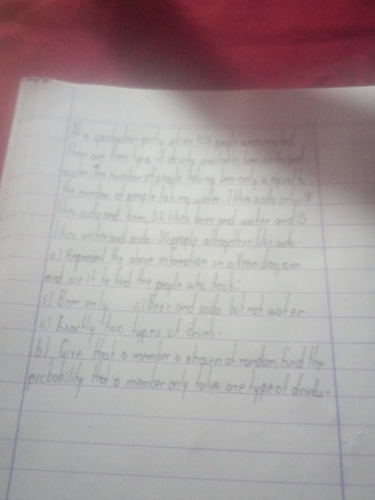 At a graduation party where 105 people were invited
There are three types of drinks available, beer, soda and
water. The number of people taking beer only is equal to
the number of people taking water. 7 likes soda only, 18
likes soda and beer, 32 likes beer and water and 15
likes water and soda. 36 people altogether like soda.
a) Represent the above information on a Venn diagram
and use it to find the people who took:-
i) Beer only ii) Beer and soda but not water
a) Exactly two types of drink.
b) Give that a member is chosen at random, find the
probability that a member only takes one type of drinks.